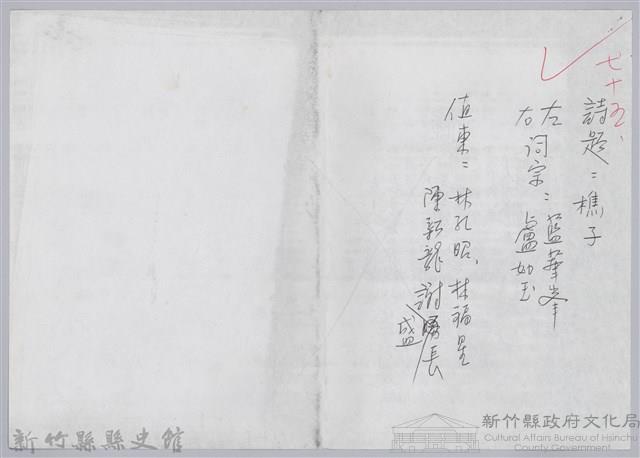 七十五、
詩題:樵子
左詞宗:藍華峰
右 盧如玉
值東:林孔昭、林福星
陳新龍 謝盛長
新竹縣縣史館
新竹縣政府文化局
Cultural Affairs Bureau of Hsinchu
County Government